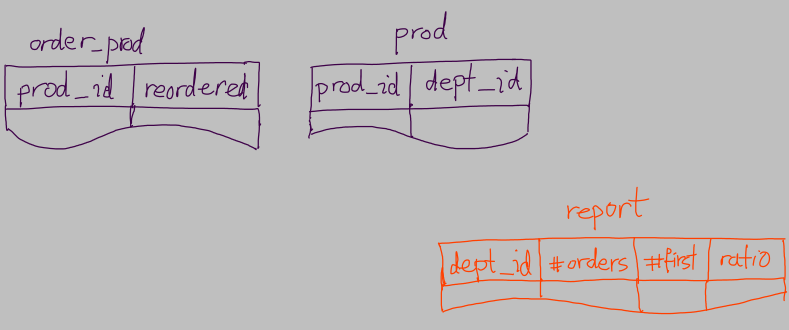 order_prod
prod_id reordered
prod
prod_id dept_id
report
dept_id #orders #first ratio